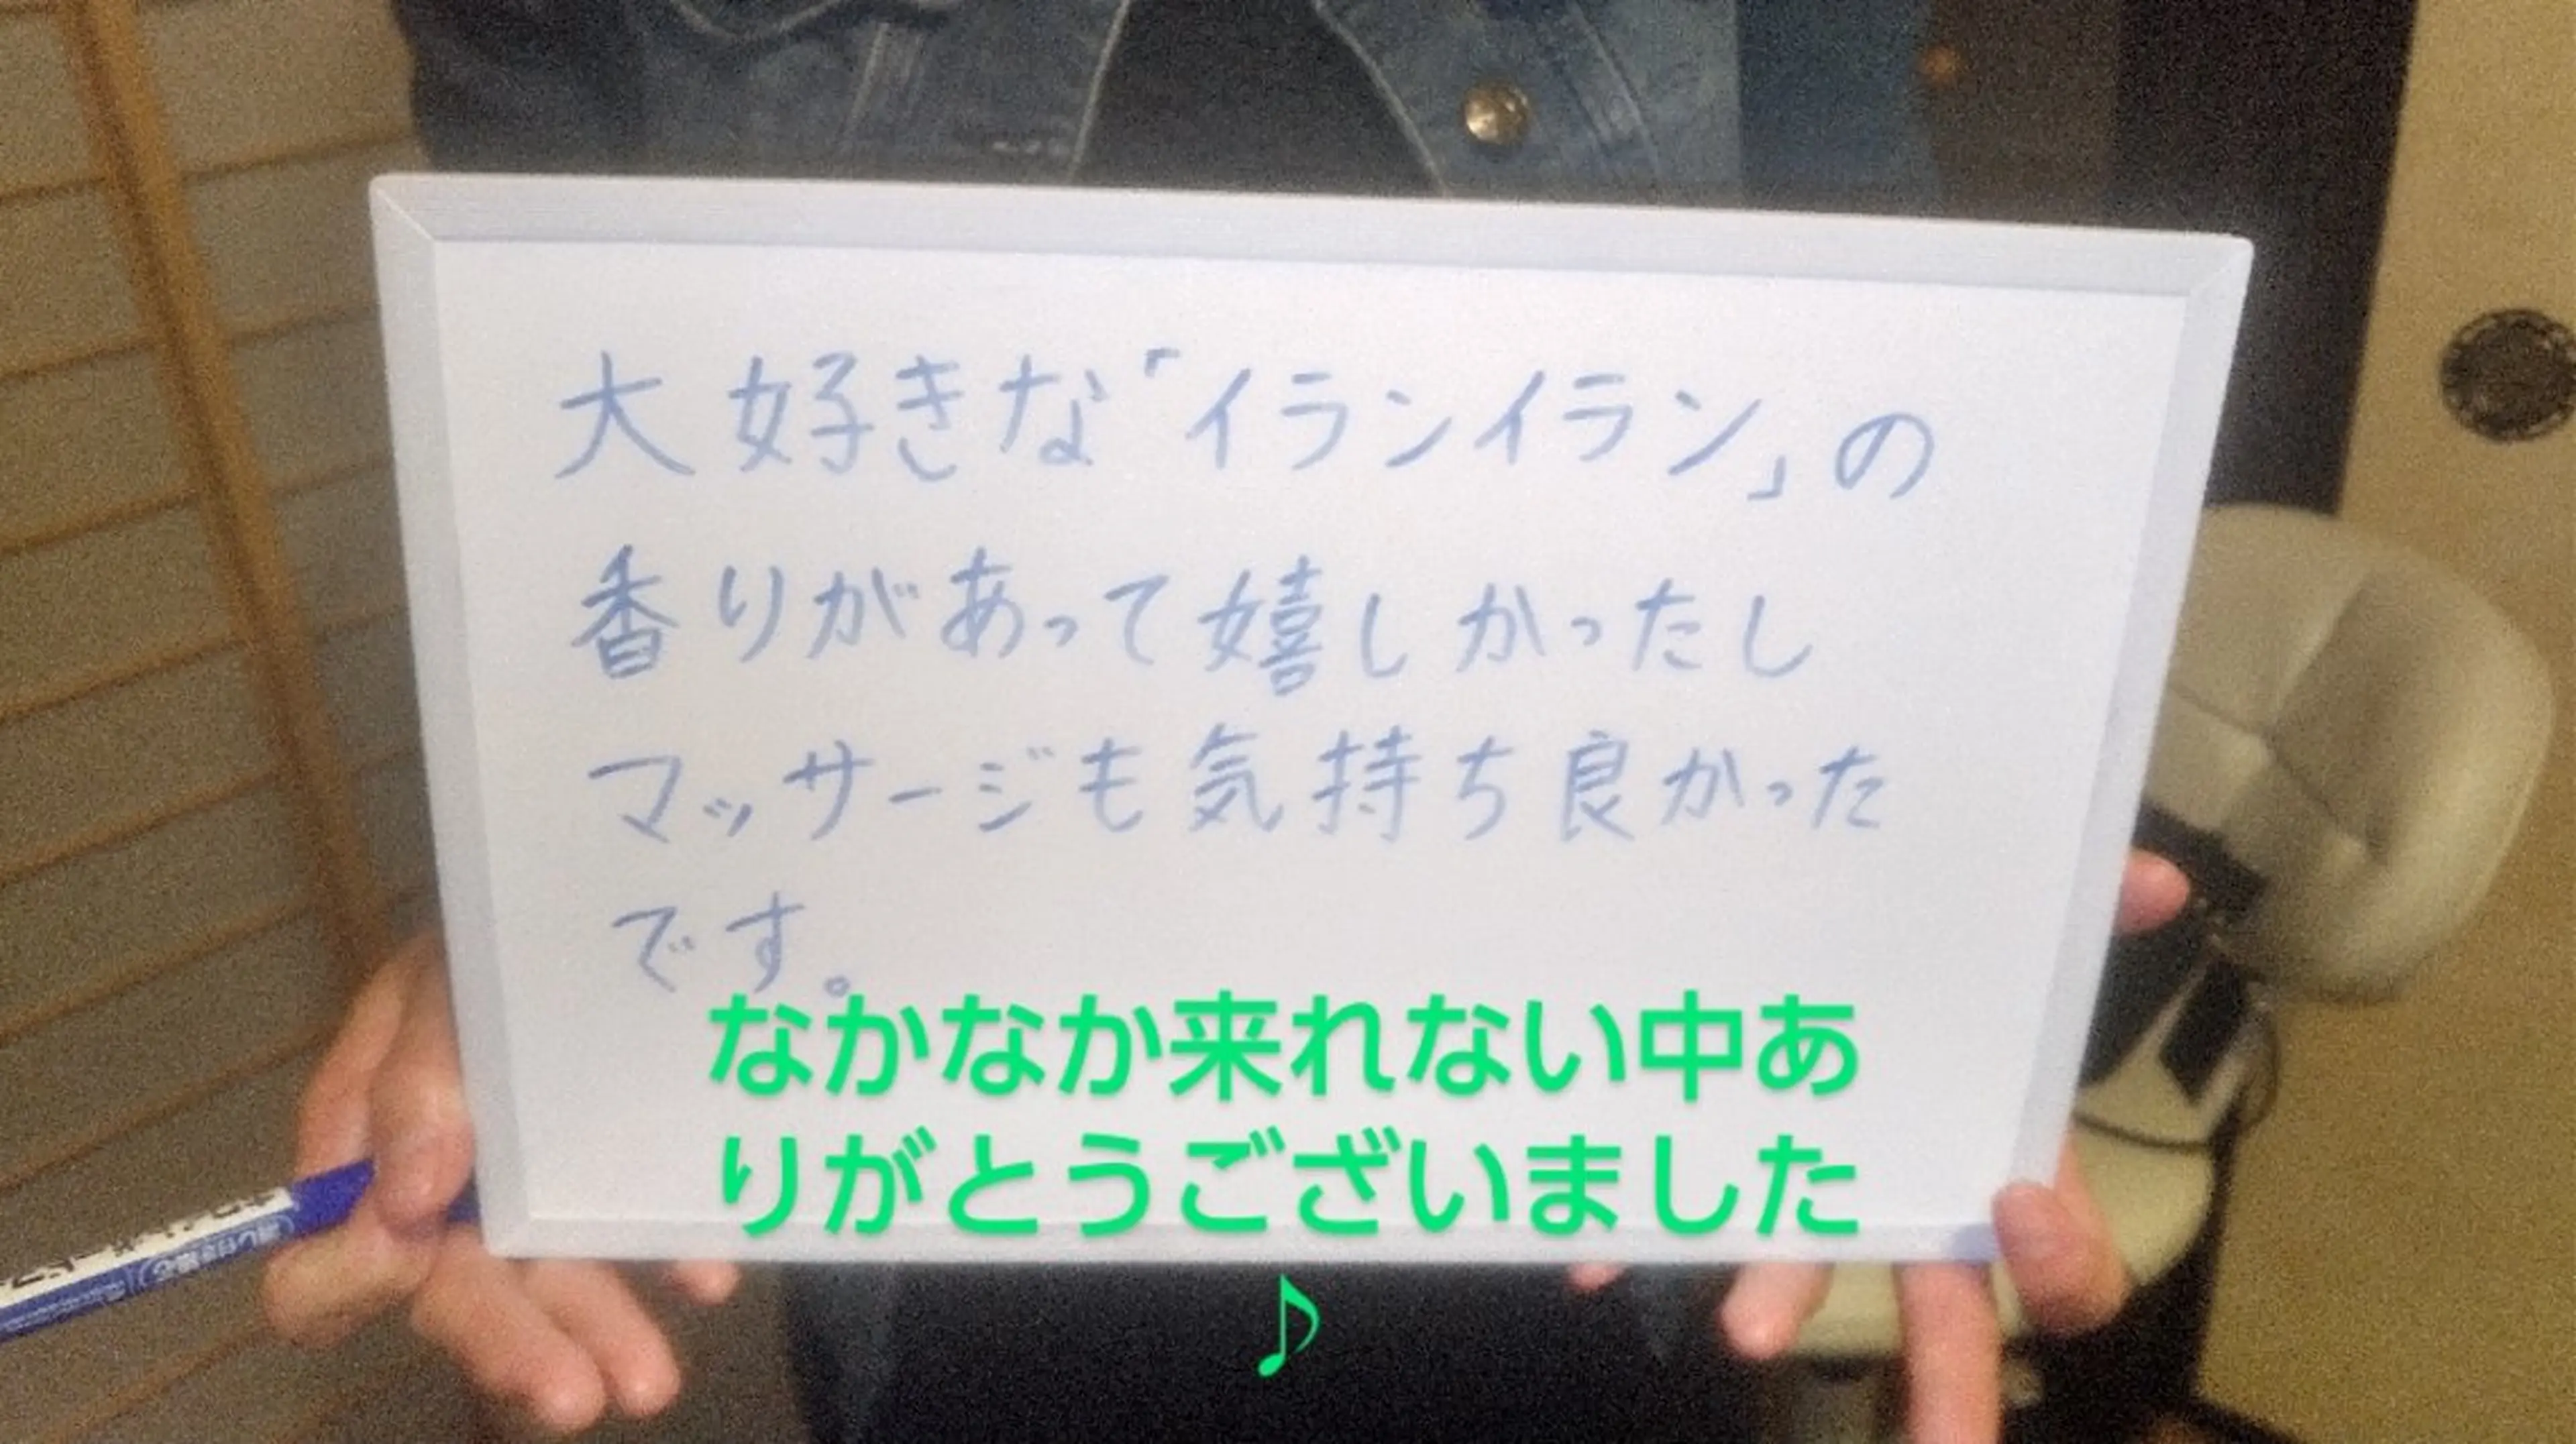 大好きな「イランイラン」の
香りがあって嬉しかったし
マッサージも気持ち良かった
です。
なかなか来れない中あ
りがとうございました
♪